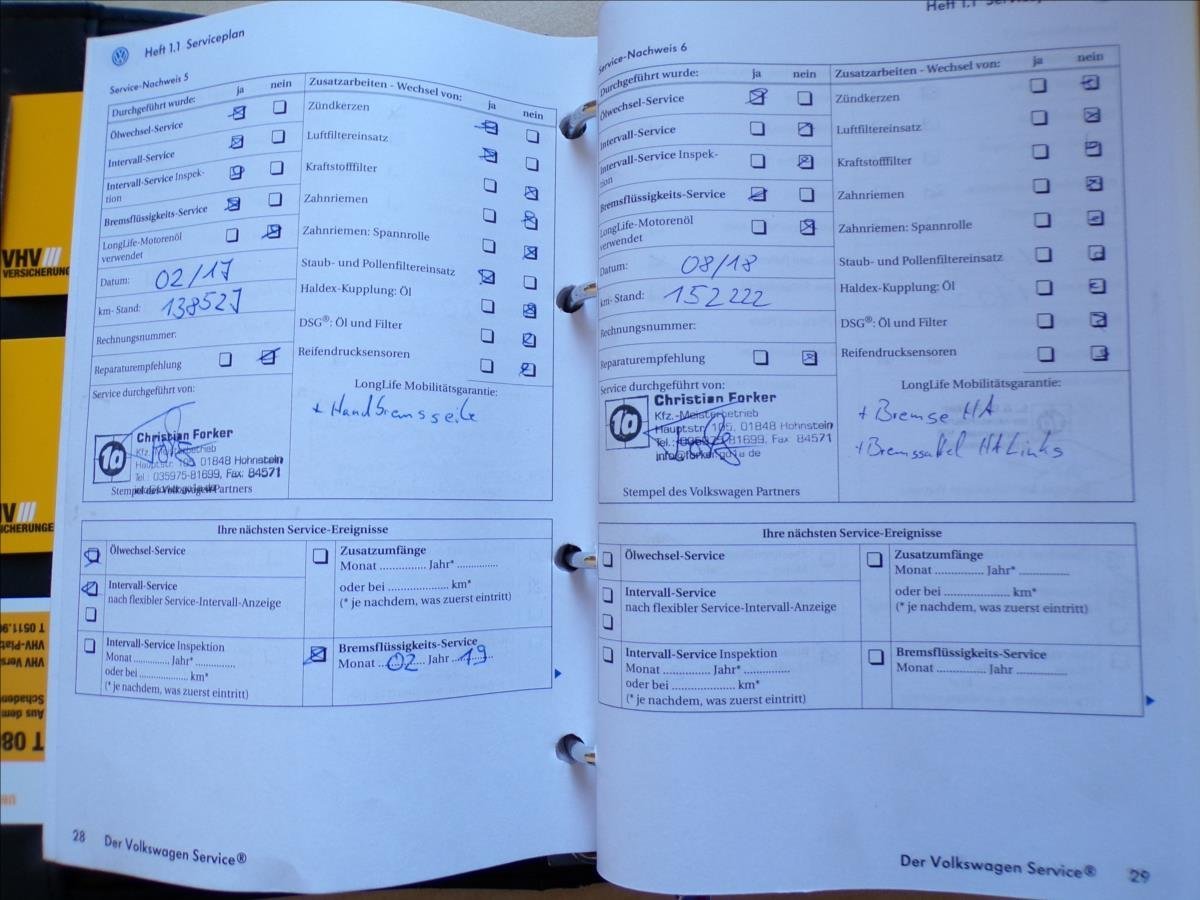 Heft 1.1 Serviceplan
Service-Nachweis 5
Durchgeführt wurde: ja nein
Ölwechsel-Service
Intervall-Service
Intervall-Service Inspek-
tion
Bremsflüssigkeits-Service
LongLife-Motorenöl
verwendet
Datum: 02/17
km-Stand: 138527
Rechnungsnummer:
Reparaturempfehlung
Service durchgeführt von:
Christian Forker
Kfz.-Meisterbetrieb
Hauptstr. 105, 01848 Hohnstein
Tel.: 035975-81699, Fax: 84571
Stempel des Volkswagen Partners
Zusatzarbeiten - Wechsel von: ja nein
Zündkerzen
Luftfiltereinsatz
Kraftstofffilter
Zahnriemen
Zahnriemen: Spannrolle
Staub- und Pollenfiltereinsatz
Haldex-Kupplung: Öl
DSG®: Öl und Filter
Reifendrucksensoren
LongLife Mobilitätsgarantie:
+ Handbremsseile
Ihre nächsten Service-Ereignisse
Ölwechsel-Service
Intervall-Service
nach flexibler Service-Intervall-Anzeige
Intervall-Service Inspektion
Monat ............ Jahr* ............
oder bei ............ km*
(* je nachdem, was zuerst eintritt)
Zusatzumfänge
Monat ............ Jahr* ............
oder bei ............ km*
(* je nachdem, was zuerst eintritt)
Bremsflüssigkeits-Service
Monat 02 Jahr 19
28 Der Volkswagen Service®
Heft 1.1 Serviceplan
Service-Nachweis 6
Durchgeführt wurde: ja nein
Ölwechsel-Service
Intervall-Service
Intervall-Service Inspek-
tion
Bremsflüssigkeits-Service
LongLife-Motorenöl
verwendet
Datum: 08/18
km-Stand: 152222
Rechnungsnummer:
Reparaturempfehlung
Service durchgeführt von:
Christian Forker
Kfz.-Meisterbetrieb
Hauptstr. 105, 01848 Hohnstein
Tel.: 035975-81699, Fax 84571
Stempel des Volkswagen Partners
Zusatzarbeiten - Wechsel von: ja nein
Zündkerzen
Luftfiltereinsatz
Kraftstofffilter
Zahnriemen
Zahnriemen: Spannrolle
Staub- und Pollenfiltereinsatz
Haldex-Kupplung: Öl
DSG®: Öl und Filter
Reifendrucksensoren
LongLife Mobilitätsgarantie:
+ Bremse HA
+ Bremssattel HA Links
Ihre nächsten Service-Ereignisse
Ölwechsel-Service
Intervall-Service
nach flexibler Service-Intervall-Anzeige
Intervall-Service Inspektion
Monat ............ Jahr* ............
oder bei ............ km*
(* je nachdem, was zuerst eintritt)
Zusatzumfänge
Monat ............ Jahr* ............
oder bei ............ km*
(* je nachdem, was zuerst eintritt)
Bremsflüssigkeits-Service
Monat ............ Jahr ............
Der Volkswagen Service® 29
VHV
VERSICHERUNG
HV
ICHERUNGE
T 0511.9
VHV-Platz
VHV Vers
Schaden
Aus dem
T 080